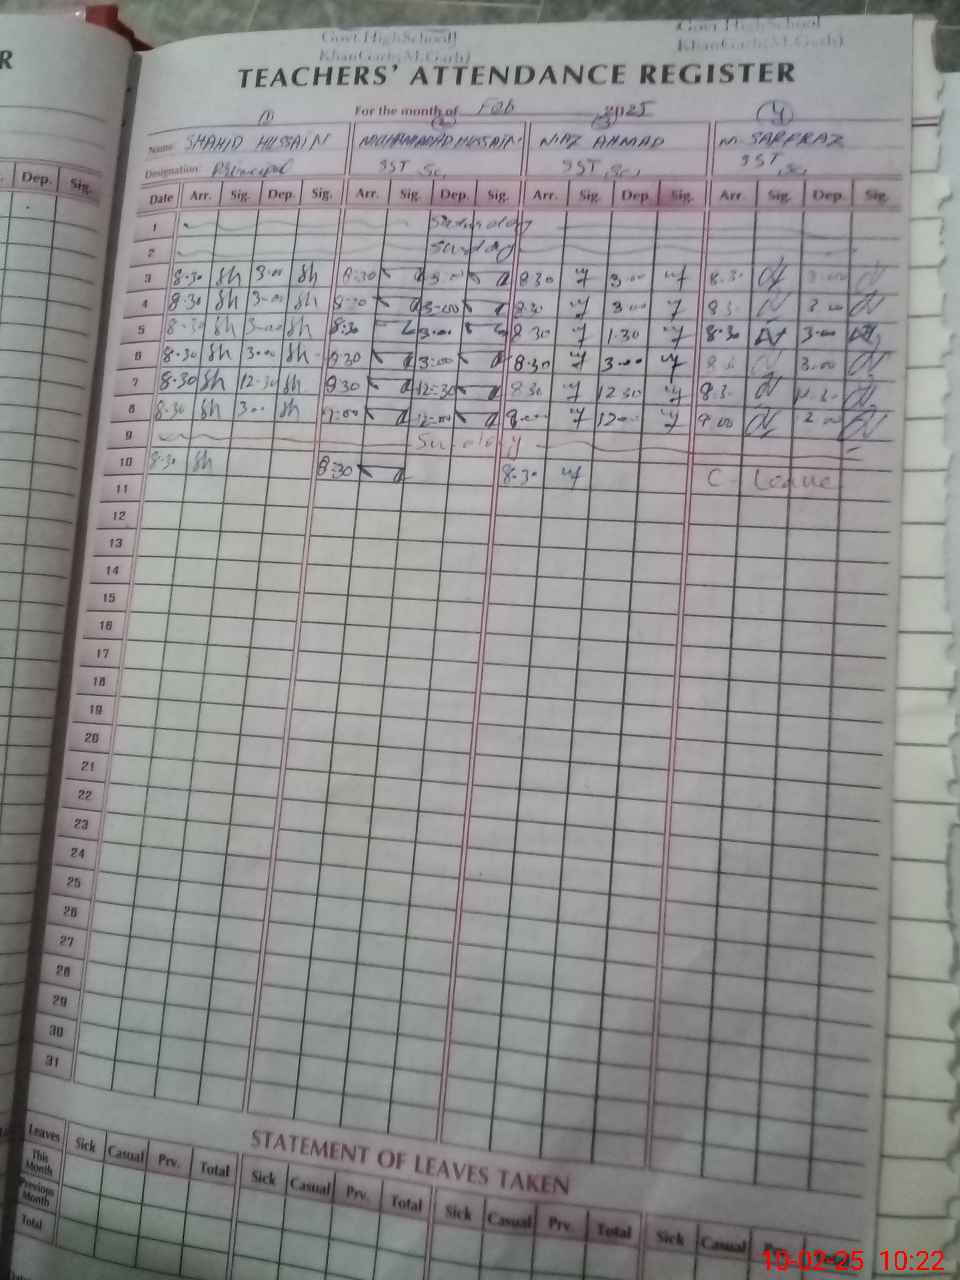 Govt. High School Govt. High School
KhanGarh(M.Garh) KhanGarh(M.Garh)
R
TEACHERS' ATTENDANCE REGISTER
For the month of Feb 2025
1 2 3 4
Name: SHAHID HUSSAIN MUHAMMAD HUSSAIN NIAZ AHMAD M. SARFRAZ
Designation: Principal SST Sc. SST, Sc. SST Sc.
Dep. Sig.
Date Arr. Sig. Dep. Sig. Arr. Sig. Dep. Sig. Arr. Sig. Dep. Sig. Arr. Sig. Dep. Sig.
1
2 Sunday
3 8.30 Sh 3.00 Sh 8:30 3:00 8.30 3.00 8.30 3.00
4 8.30 Sh 3.00 Sh 8:30 3:00 8.30 3.00 8.30 3.00
5 8.30 Sh 3.00 Sh 8:30 3:00 8.30 1.30 8.30 3.00
6 8.30 Sh 3.00 Sh 8:30 3:00 8.30 3.00 8.30 3.00
7 8.30 Sh 12.30 Sh 8:30 12:30 8.30 12.30 8.30 12.30
8 8.30 Sh 3.00 Sh 9:00 12:00 9.00 12.00 9.00 2.00
9 Sunday
10 8.30 Sh 8:30 8.30 C. Leave
11
12
13
14
15
16
17
18
19
20
21
22
23
24
25
26
27
28
29
30
31
STATEMENT OF LEAVES TAKEN
Leaves Sick Casual Prv. Total Sick Casual Prv. Total Sick Casual Prv. Total Sick Casual Prv. Total
This Month
Previous Month
Total
10-02-25 10:22